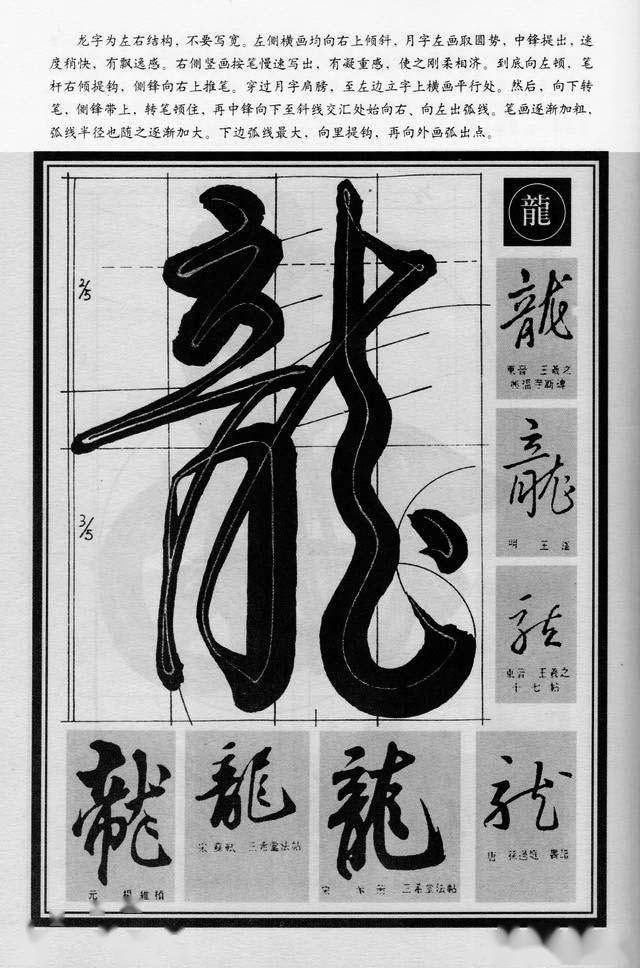 龙字为左右结构，不要写宽。左侧横画均向右上倾斜，月字左画取圆势，中锋提出，速
度稍快，有飘逸感。右侧竖画按笔慢速写出，有凝重感，使之刚柔相济。到底向左顿，笔
杆右倾提钩，侧锋向右上推笔。穿过月字肩膀，至左边立字上横画平行处。然后，向下转
笔，侧锋带上，转笔顿住，再中锋向下至斜线交汇处始向右、向左出弧线。笔画逐渐加粗，
弧线半径也随之逐渐加大。下边弧线最大，向里提钩，再向外画弧出点。
龍
2/5
3/5
龍
龍
東晋 王羲之
龍
明 王
龍
東晋 王羲之
十七帖
龍
元 楊維楨
龍
宋 蘇軾 三希堂法帖
龍
宋 三希堂法帖
龍
唐 孫過庭 書譜